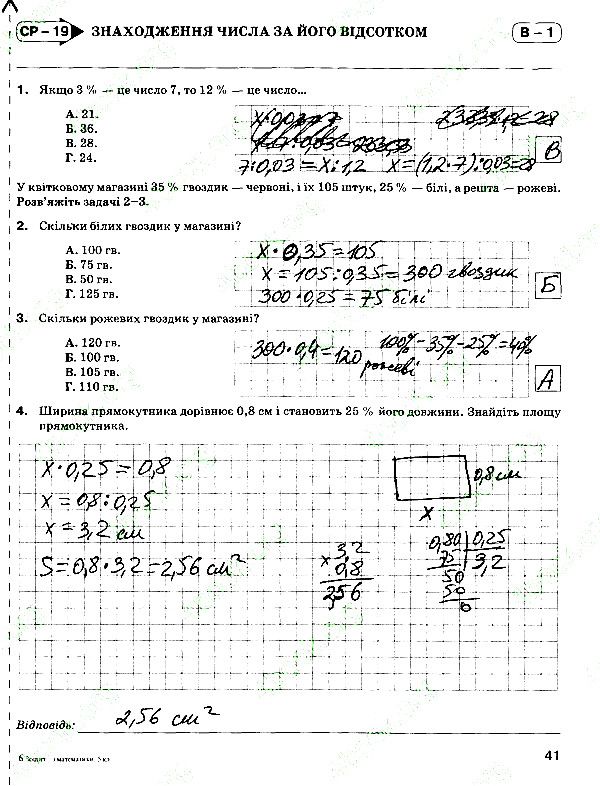 СР – 19
ЗНАХОДЖЕННЯ ЧИСЛА ЗА ЙОГО ВІДСОТКОМ
В – 1
1. Якщо 3 % — це число 7, то 12 % — це число...
А. 21.
Б. 36.
В. 28.
Г. 24.
7:0,03=x:1,2 x=(1,2·7):0,03=28
В
У квітковому магазині 35 % гвоздик — червоні, і їх 105 штук, 25 % — білі, а решта — рожеві.
Розв'яжіть задачі 2–3.
2. Скільки білих гвоздик у магазині?
А. 100 гв.
Б. 75 гв.
В. 50 гв.
Г. 125 гв.
x·0,35=105
x=105:0,35=300 гвоздик
300·0,25=75 білі
Б
3. Скільки рожевих гвоздик у магазині?
А. 120 гв.
Б. 100 гв.
В. 105 гв.
Г. 110 гв.
300·0,4=120
рожеві
100%-35%-25%=40%
А
4. Ширина прямокутника дорівнює 0,8 см і становить 25 % його довжини. Знайдіть площу
прямокутника.
x·0,25=0,8
x=0,8:0,25
x=3,2 см
S=0,8·3,2=2,56 см²
0,8 см
x
3,2
x 0,8
2,56
0,80 0,25
75 3,2
50
50
0
Відповідь: 2,56 см²
41